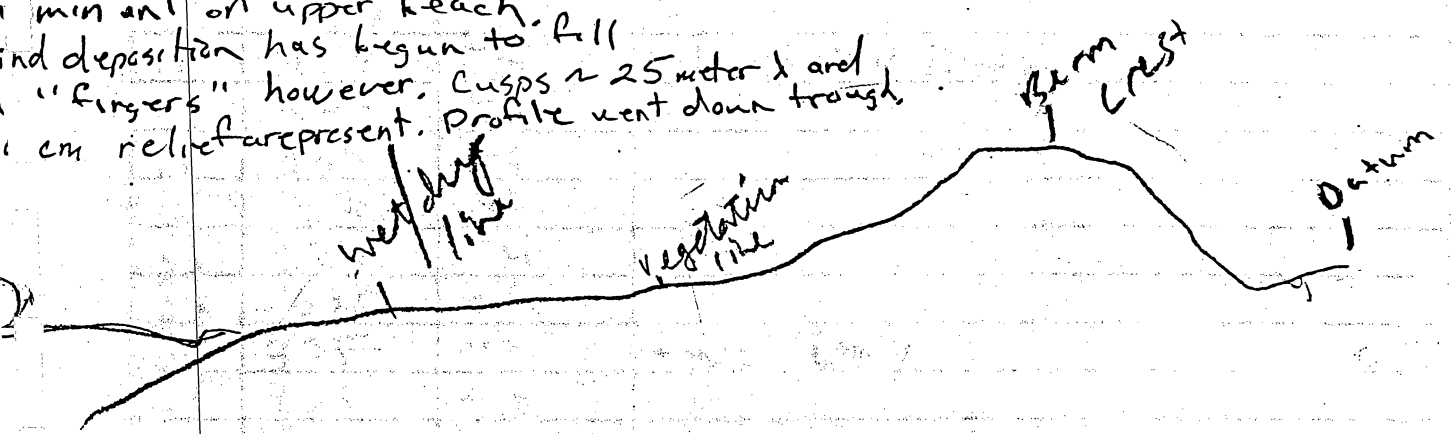 minant on upper beach.
ind deposition has begun to fill
"fingers" however. Cusps ~ 25 meter λ and
cm relief are present. Profile went down trough.
Berm
Crest
Datum
wet/dry
line
vegetation
line